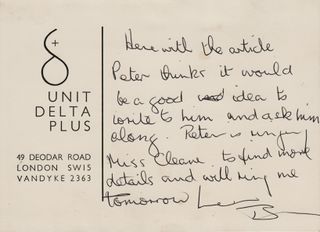 UNIT
DELTA
PLUS
49 DEODAR ROAD
LONDON SW15
VANDYKE 2363
Here with the article
Peter thinks it would
be a good idea to
write to him and ask him
along. Peter is
Miss Cleane to find more
details and will ring me
tomorrow